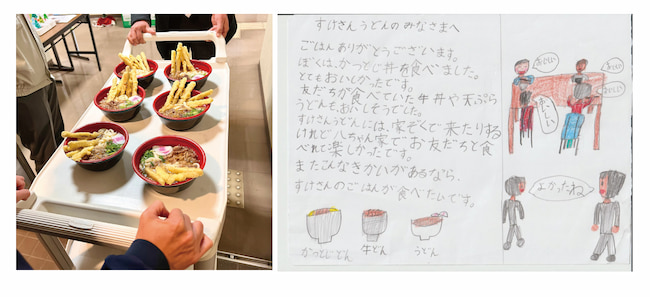 すけさんうどんのみなさまへ
ごはんありがとうございます。
ぼくは、かつとじ丼を食べました。
とてもおいしかったです。
友だちが食べていた牛丼や天ぷら
うどんも、おいしそうでした。
すけさんうどんには、家ぞくで来たりする
けれど八ちゃん家でお友だちと食
べれて楽しかったです。
またこんなきかいがあるなら、
すけさんのごはんが食べたいです。
かつとじどん
牛どん
うどん
おいしい
おいしい
おいしい
よかったね